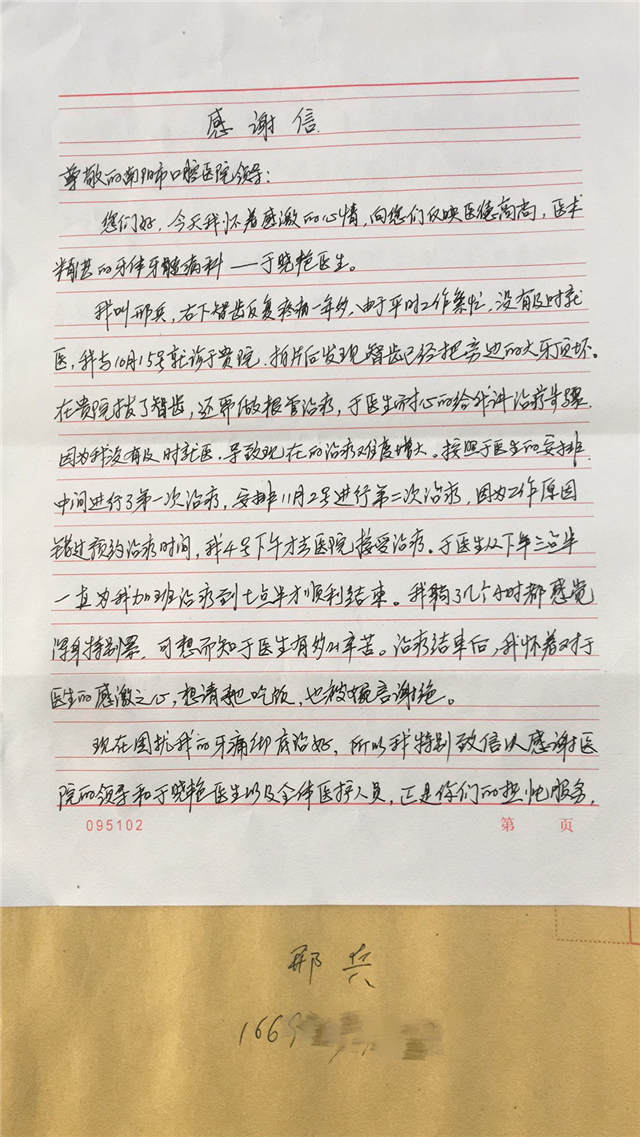 感谢信
尊敬的南阳市口腔医院领导：
您们好，今天我怀着感激的心情，向您们反映医德高尚，医术
精湛的牙体牙髓病科——于晓艳医生。
我叫邢兵，右下智齿反复疼痛一年多，由于平时工作繁忙，没有及时就
医，我与10月15号就诊于贵院．拍片后发现智齿已经把旁边的大牙顶坏。
在贵院拔了智齿，还需做根管治疗，于医生耐心的给我讲治疗步骤．
因为我没有及时就医．导致现在的治疗难度增大。按照于医生的安排．
中间进行了第一次治疗，安排11月2号进行第二次治疗，因为工作原因
错过预约治疗时间，我4号下午才去医院接受治疗。于医生从下午三点半
一直为我加班治疗到七点半才顺利结束。我躺了几个小时都感觉
浑身特别累．可想而知于医生有多么辛苦。治疗结束后，我怀着对于
医生的感激之心，想请她吃饭，也被婉言谢绝。
现在困扰我的牙痛彻底治好，所以我特别致信以感谢医
院的领导和于晓艳医生以及全体医护人员，正是你们的热忱服务，
095102 第 页
邢兵
1669